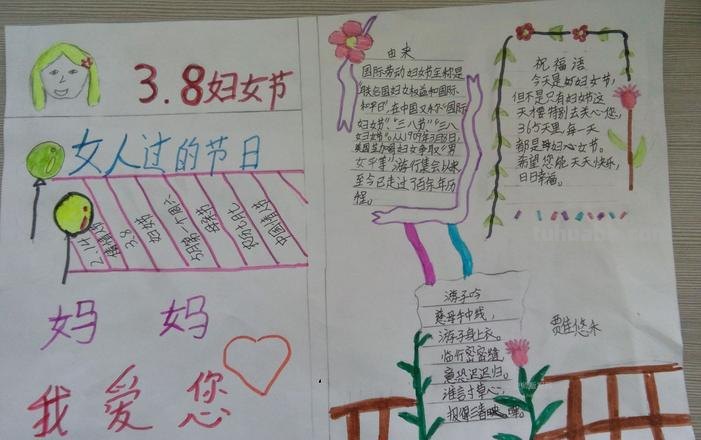 3.8妇女节
女人过的节日
2.14
情人节
3.8
妇女节
5月第一个周六
母亲节
农历七月七
中国情人节
妈 妈
我 爱 您
由来
国际劳动妇女节全称是
联合国妇女权益和国际
和平日",在中国又称"国际
妇女节"、"三八节""三八
妇女节"。从1909年3月8日,
美国芝加哥妇女争取"男
女平等"游行集会以来
至今已走过了百余年历
程。
祝福语
今天是妇女节,
但不是只有妇女节这
天才要特别去关心您,
365天里,每一天
都是妇心女节。
希望您能天天快乐,
日日幸福。
tuhuabk.com
游子吟
慈母手中线,
游子身上衣。
临行密密缝,
意恐迟迟归。
谁言寸草心,
报得三春晖。